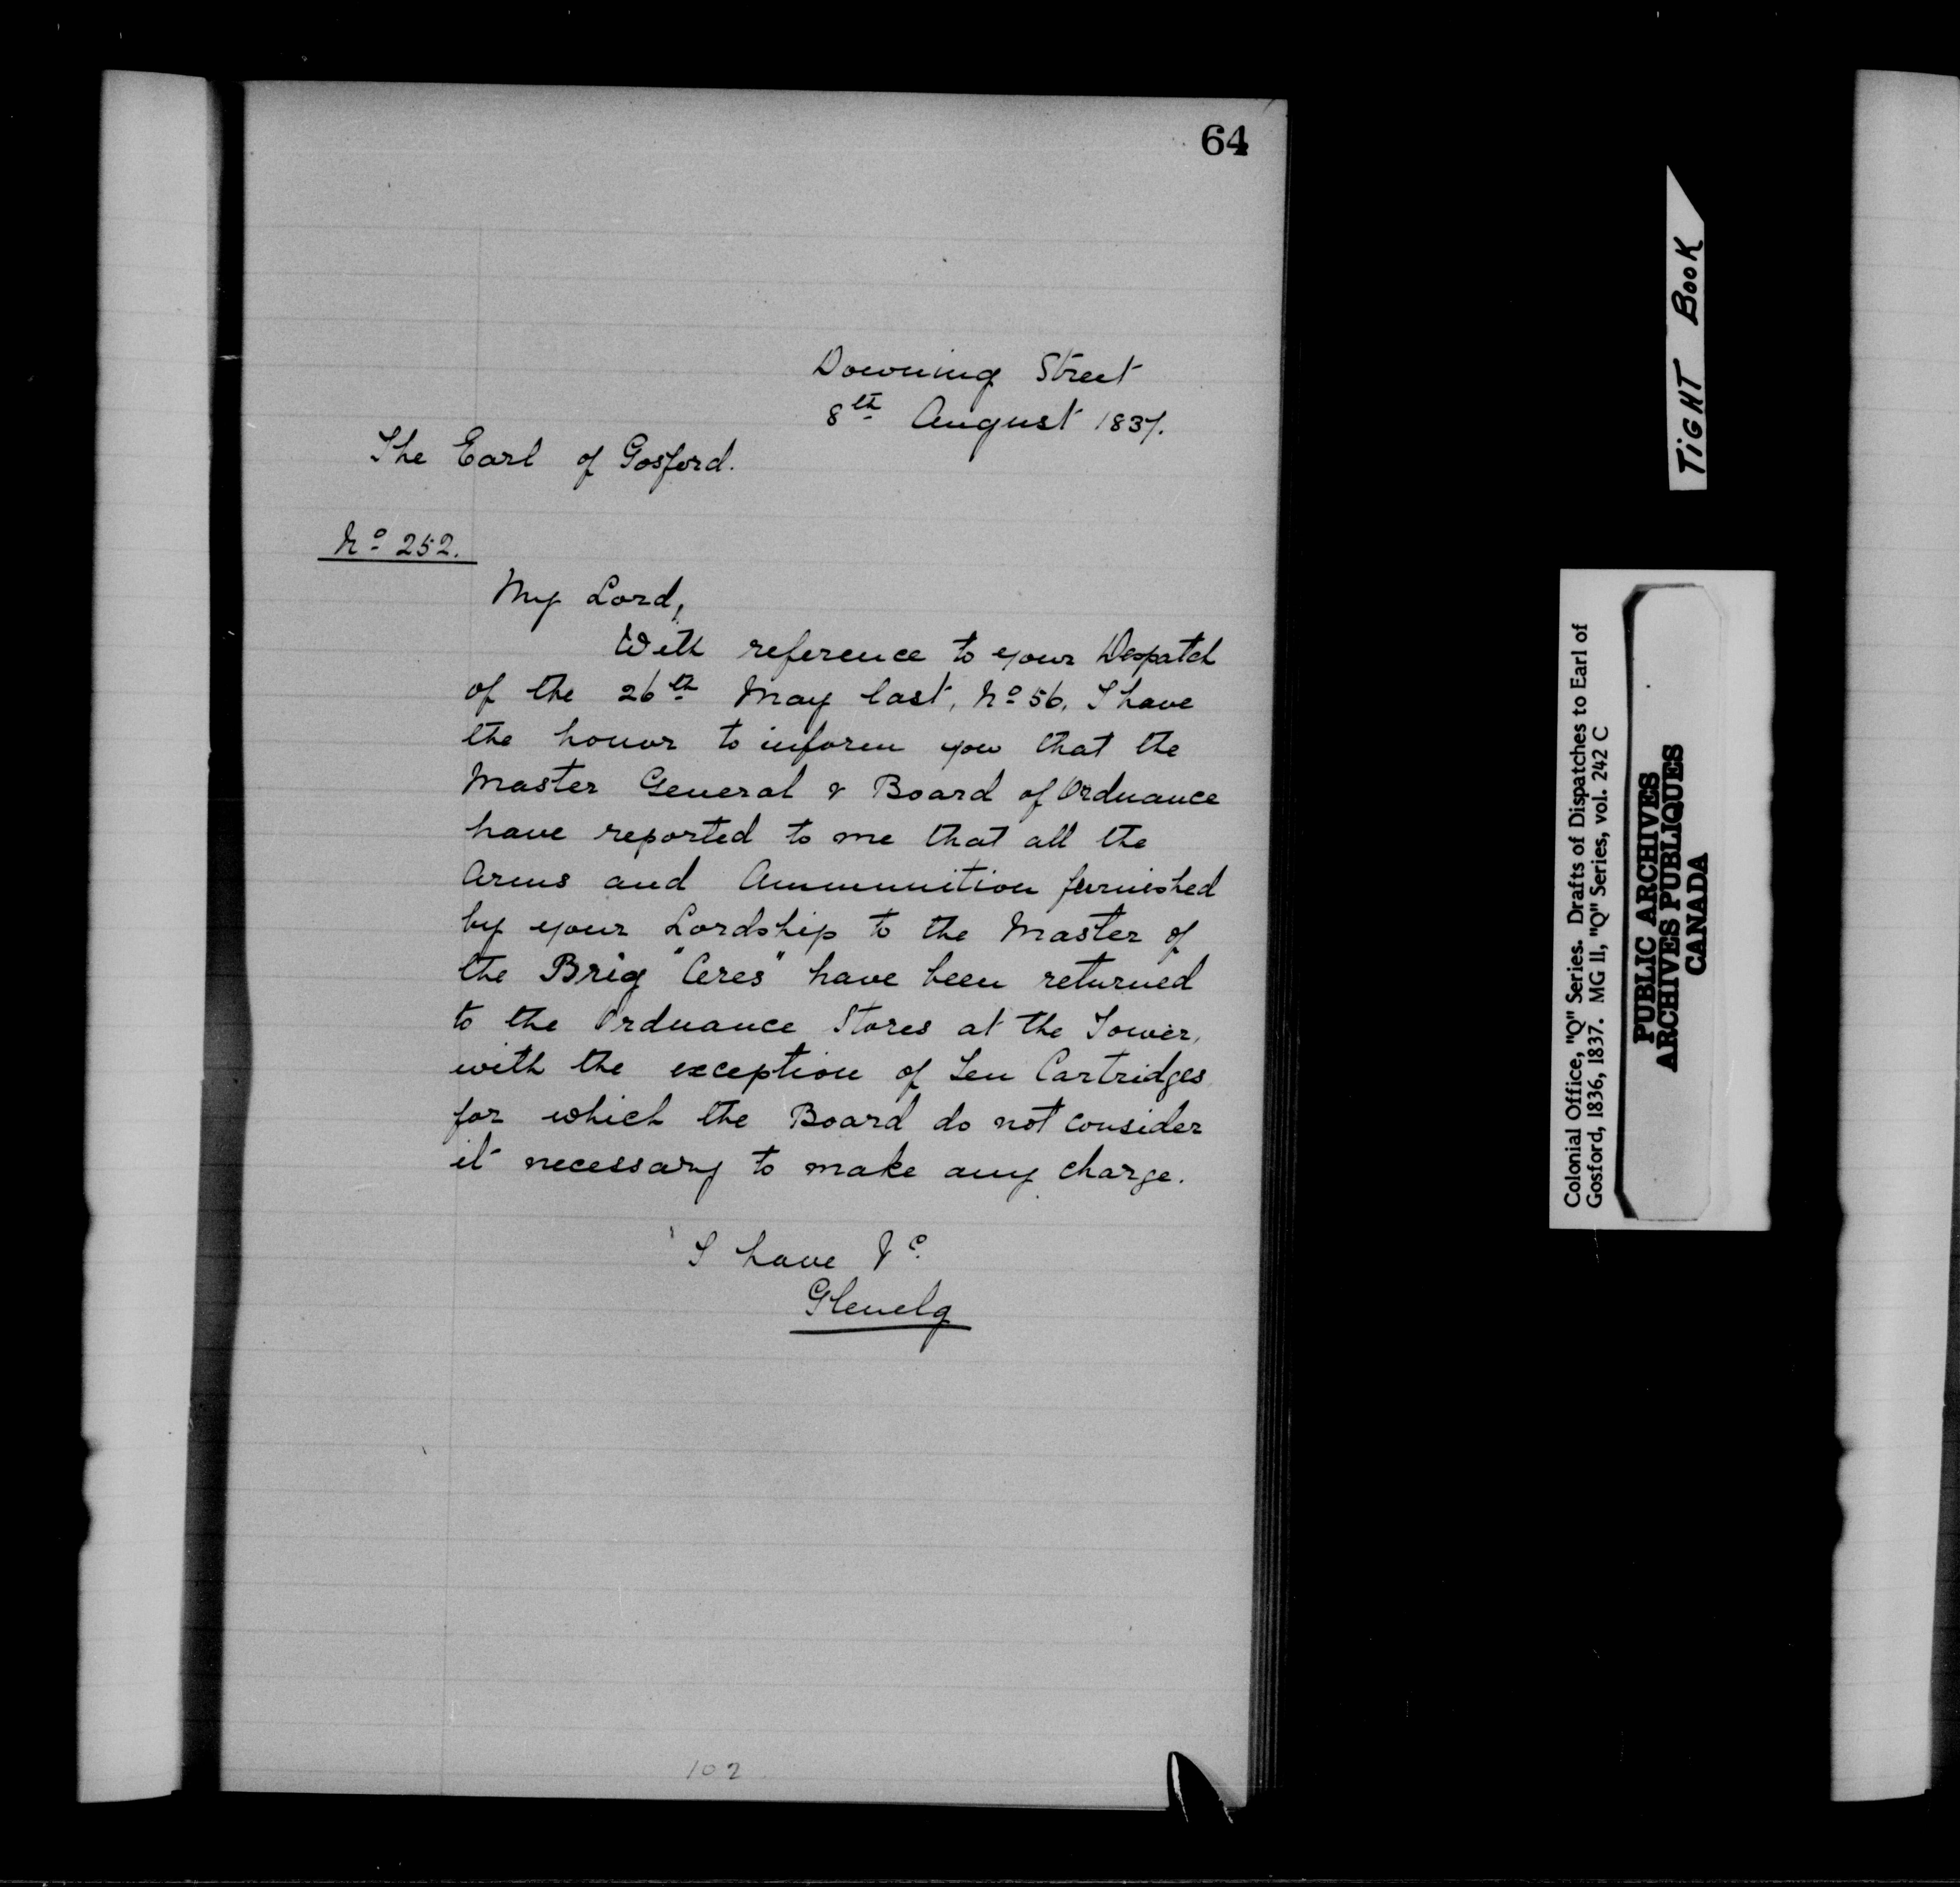 64
Downing Street
8th August 1837.
The Earl of Gosford.
No 252.
My Lord,
With reference to your Despatch
of the 26th May last, No 56, I have
the honor to inform you that the
Master General & Board of Ordnance
have reported to me that all the
Arms and Ammunition furnished
by your Lordship to the Master of
the Brig "Ceres" have been returned
to the Ordnance Stores at the Tower,
with the exception of Ten Cartridges
for which the Board do not consider
it necessary to make any charge.
I have &c.
Glenelg
102
TIGHT BOOK
Colonial Office, "Q" Series. Drafts of Dispatches to Earl of
Gosford, 1836, 1837. MG II, "Q" Series, vol. 242 C
PUBLIC ARCHIVES
ARCHIVES PUBLIQUES
CANADA